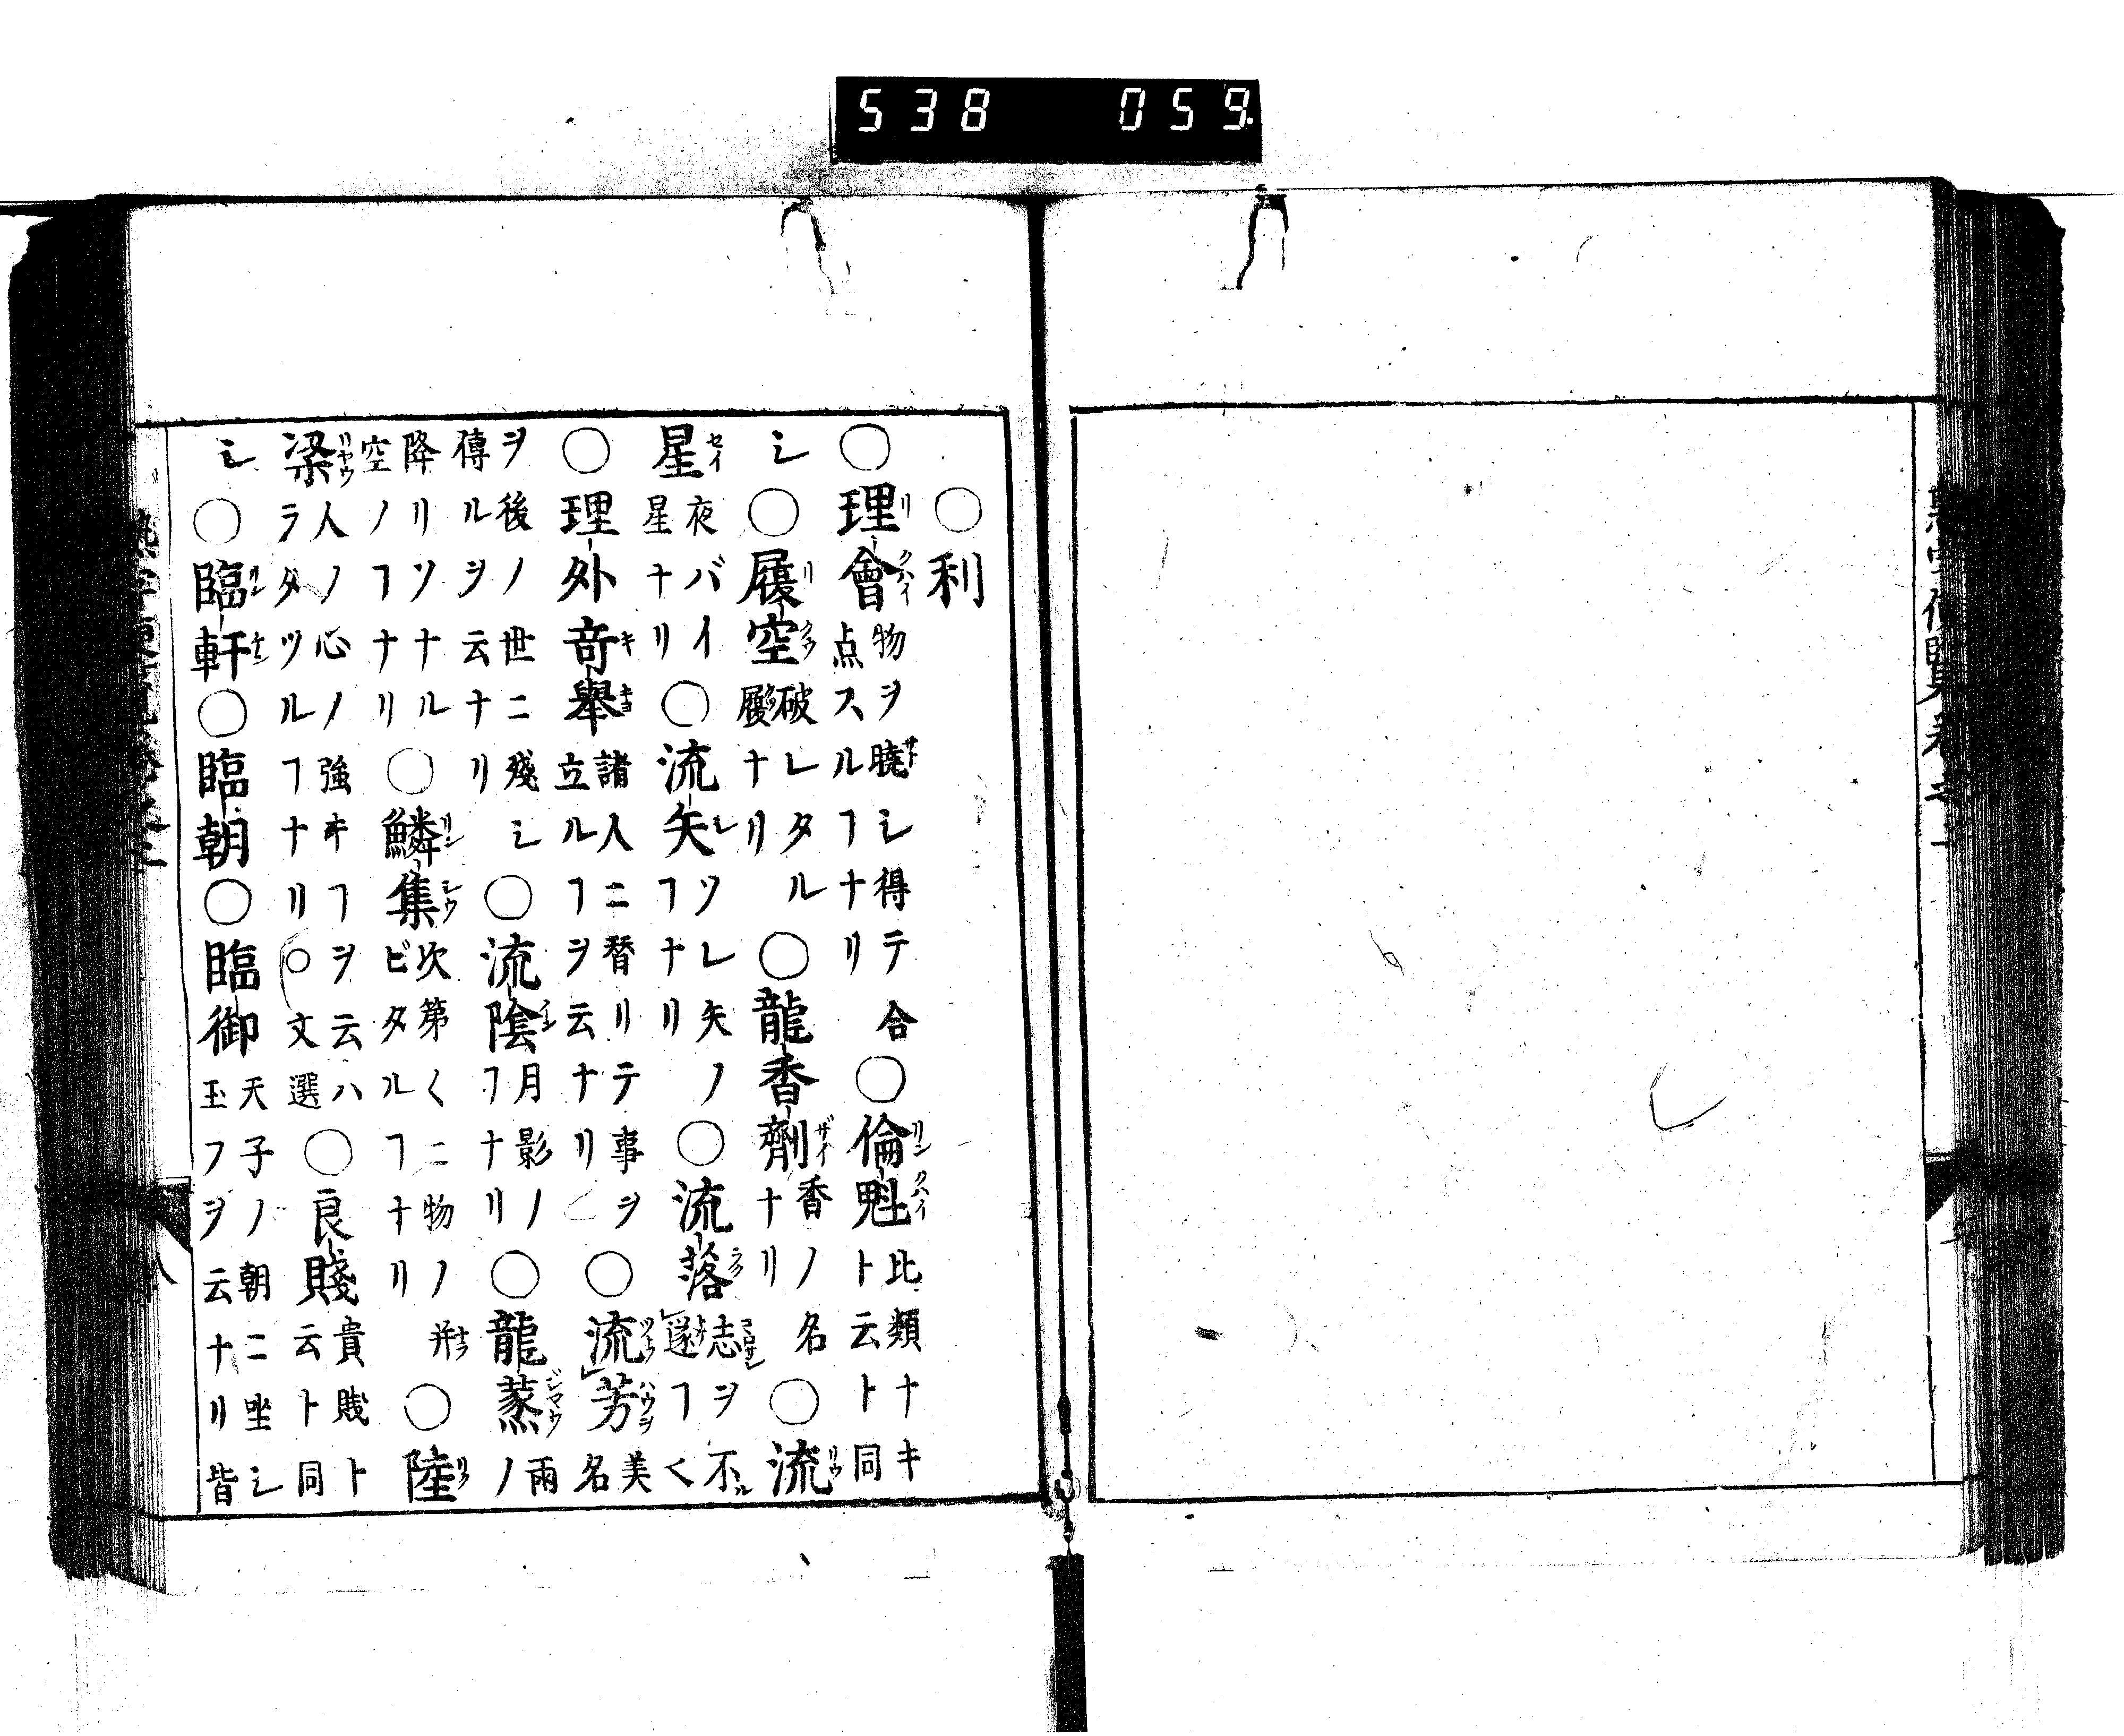 538 059
○利
○理會物ヲ曉シ得テ合点スルヿナリ○倫魁比類ナキト云ト同
シ○履空破レタル履ナリ○龍香劑香ノ名ナリ○流
星夜バイ星ナリ○流矢ソレ矢ノヿナリ○流落志ヲ不遂ヿ〱
○理外奇舉諸人ニ替リテ事ヲ立ルヿヲ云ナリ○流芳美名
ヲ後ノ世ニ殘シ傳ルヲ云ナリ○流陰月影ノヿナリ○龍蒸雨ノ
降リソナル空ノヿナリ○鱗集次第〱ニ物ノ并ビタルヿナリ○陸
梁人ノ心ノ強キヿヲ云ハラダツルヿナリ○文選○良賤貴賎ト云ト同
シ○臨軒○臨朝○臨御天子ノ朝ニ坐シ玉フヲ云ナリ皆